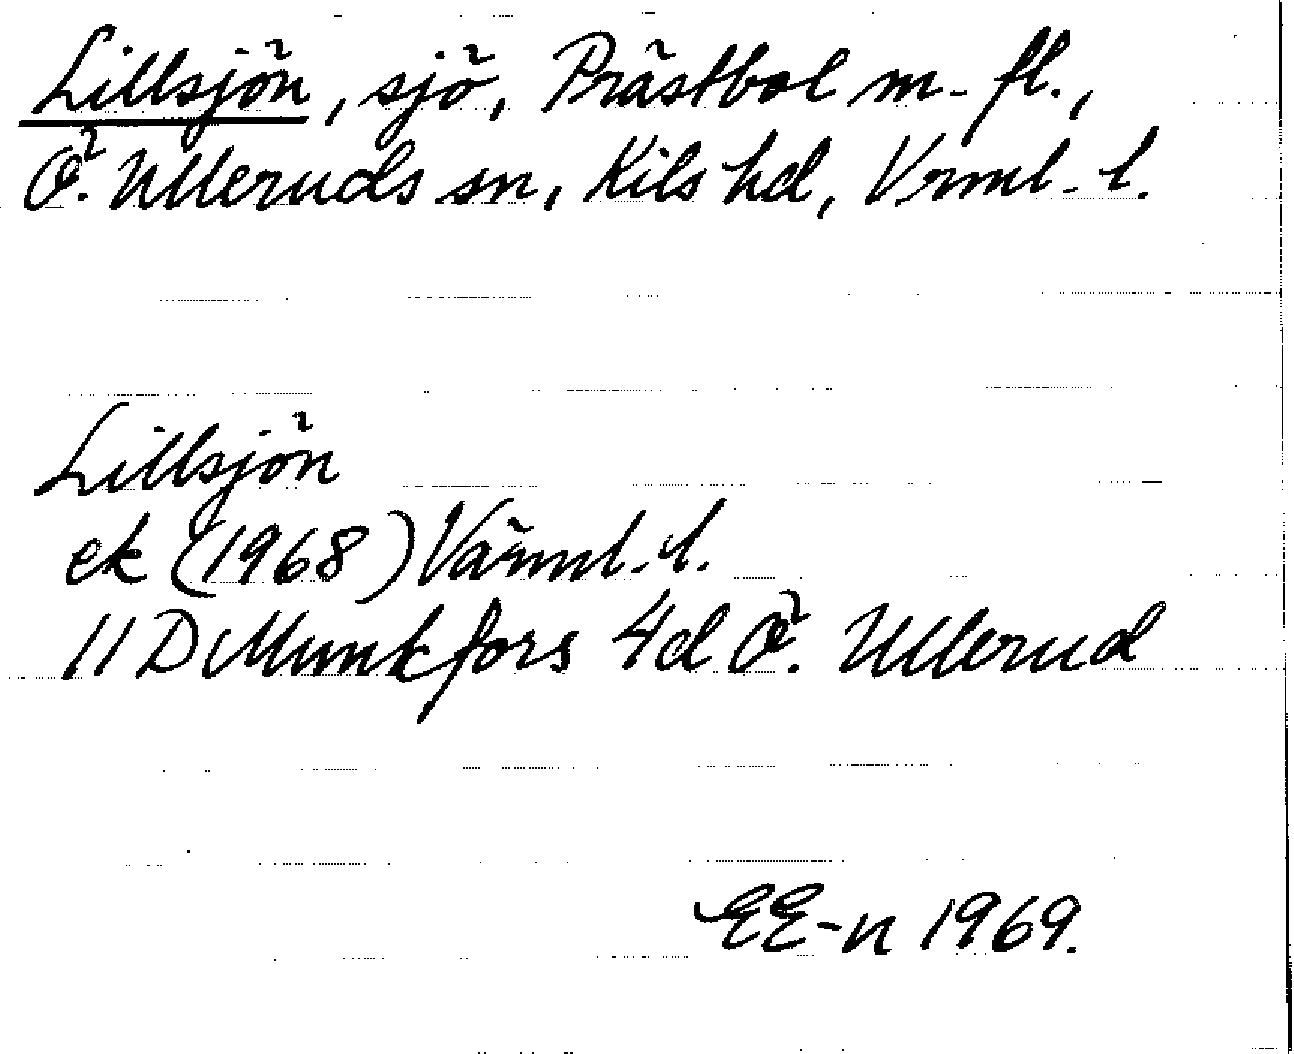 Lillsjön, sjö, Prästbol m. fl.,
Ö. Ulleruds sn, Kils hd, Vrml. l.
Lillsjön
ek (1968) Värml. l.
11 D Munkfors 4d Ö. Ullerud
EE-n 1969.